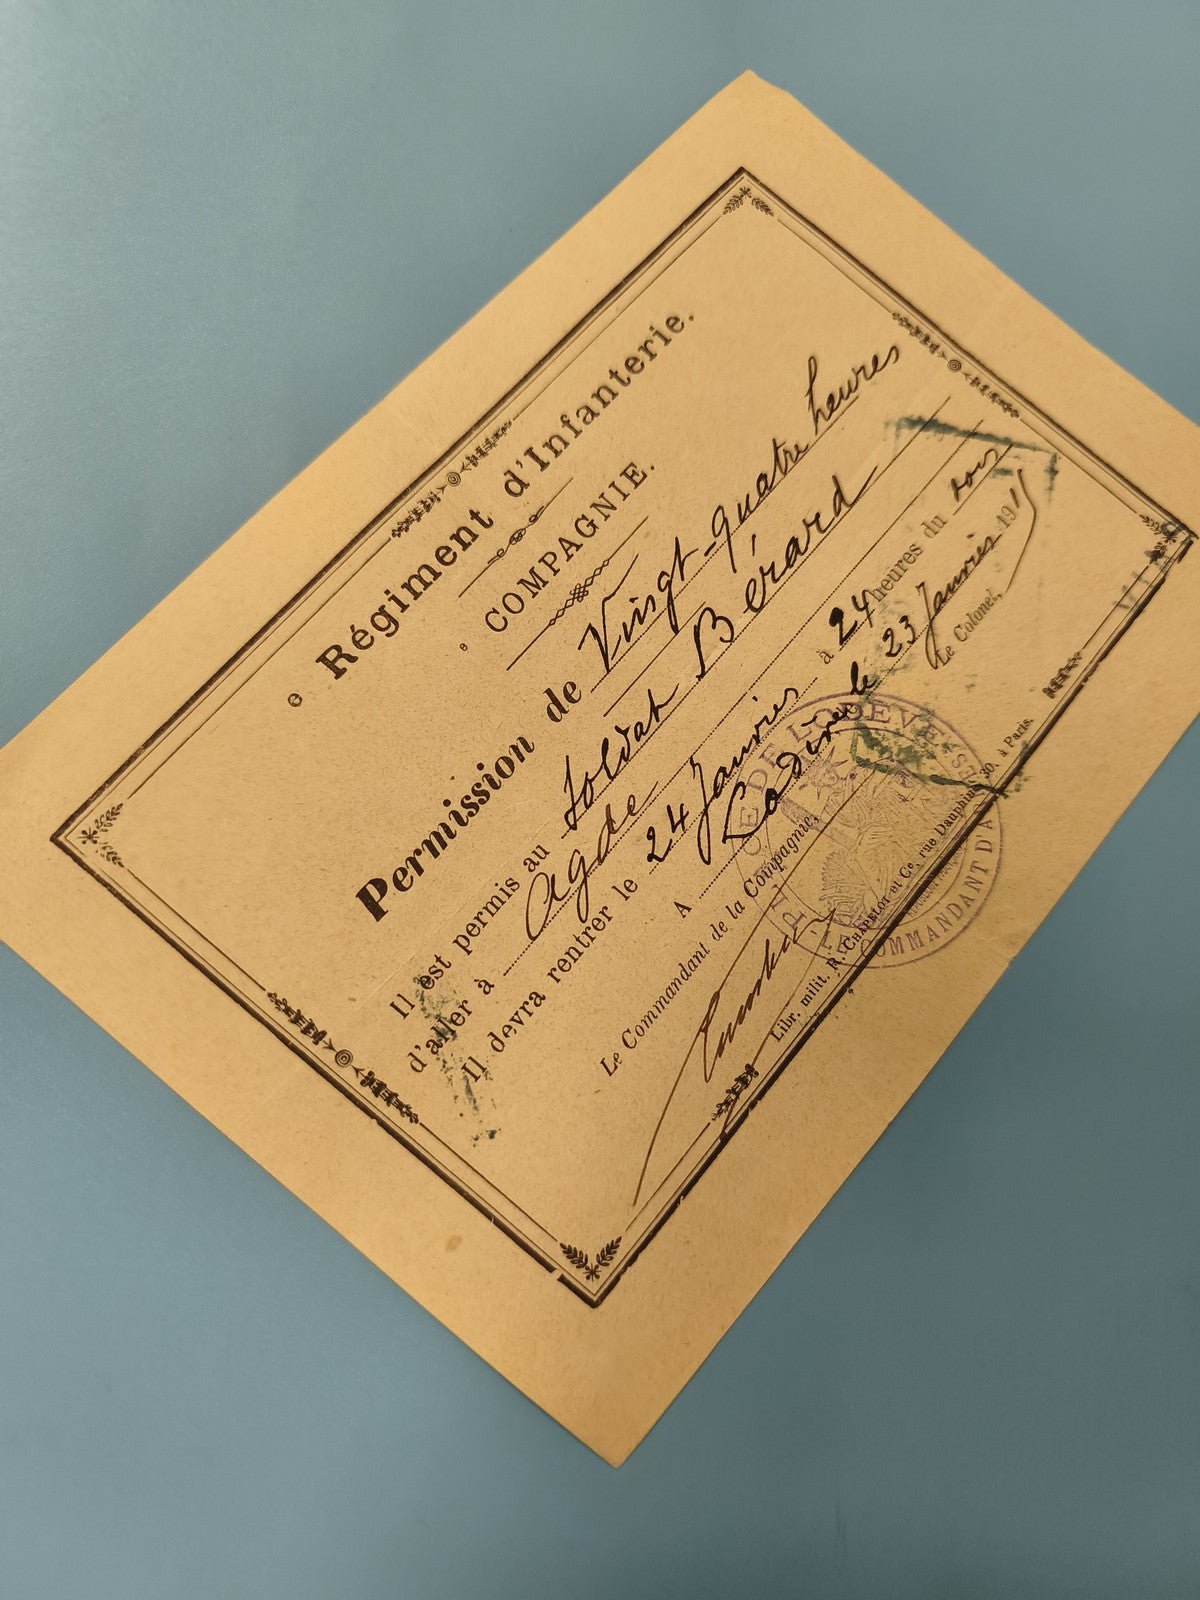 e Régiment d'Infanterie.
e COMPAGNIE.
Permission de Vingt-quatre heures
Il est permis au soldat Bérard
d'aller à Agde
Il devra rentrer le 24 Janvier à 24 heures du soir
A Lodève le 23 Janvier 1915
Le Commandant de la Compagnie, Le Colonel,
PLACE DE LODEVE
COMMANDANT D'A
Libr. milit. R. CHAPELOT et Ce, rue Dauphine, 30, à Paris.